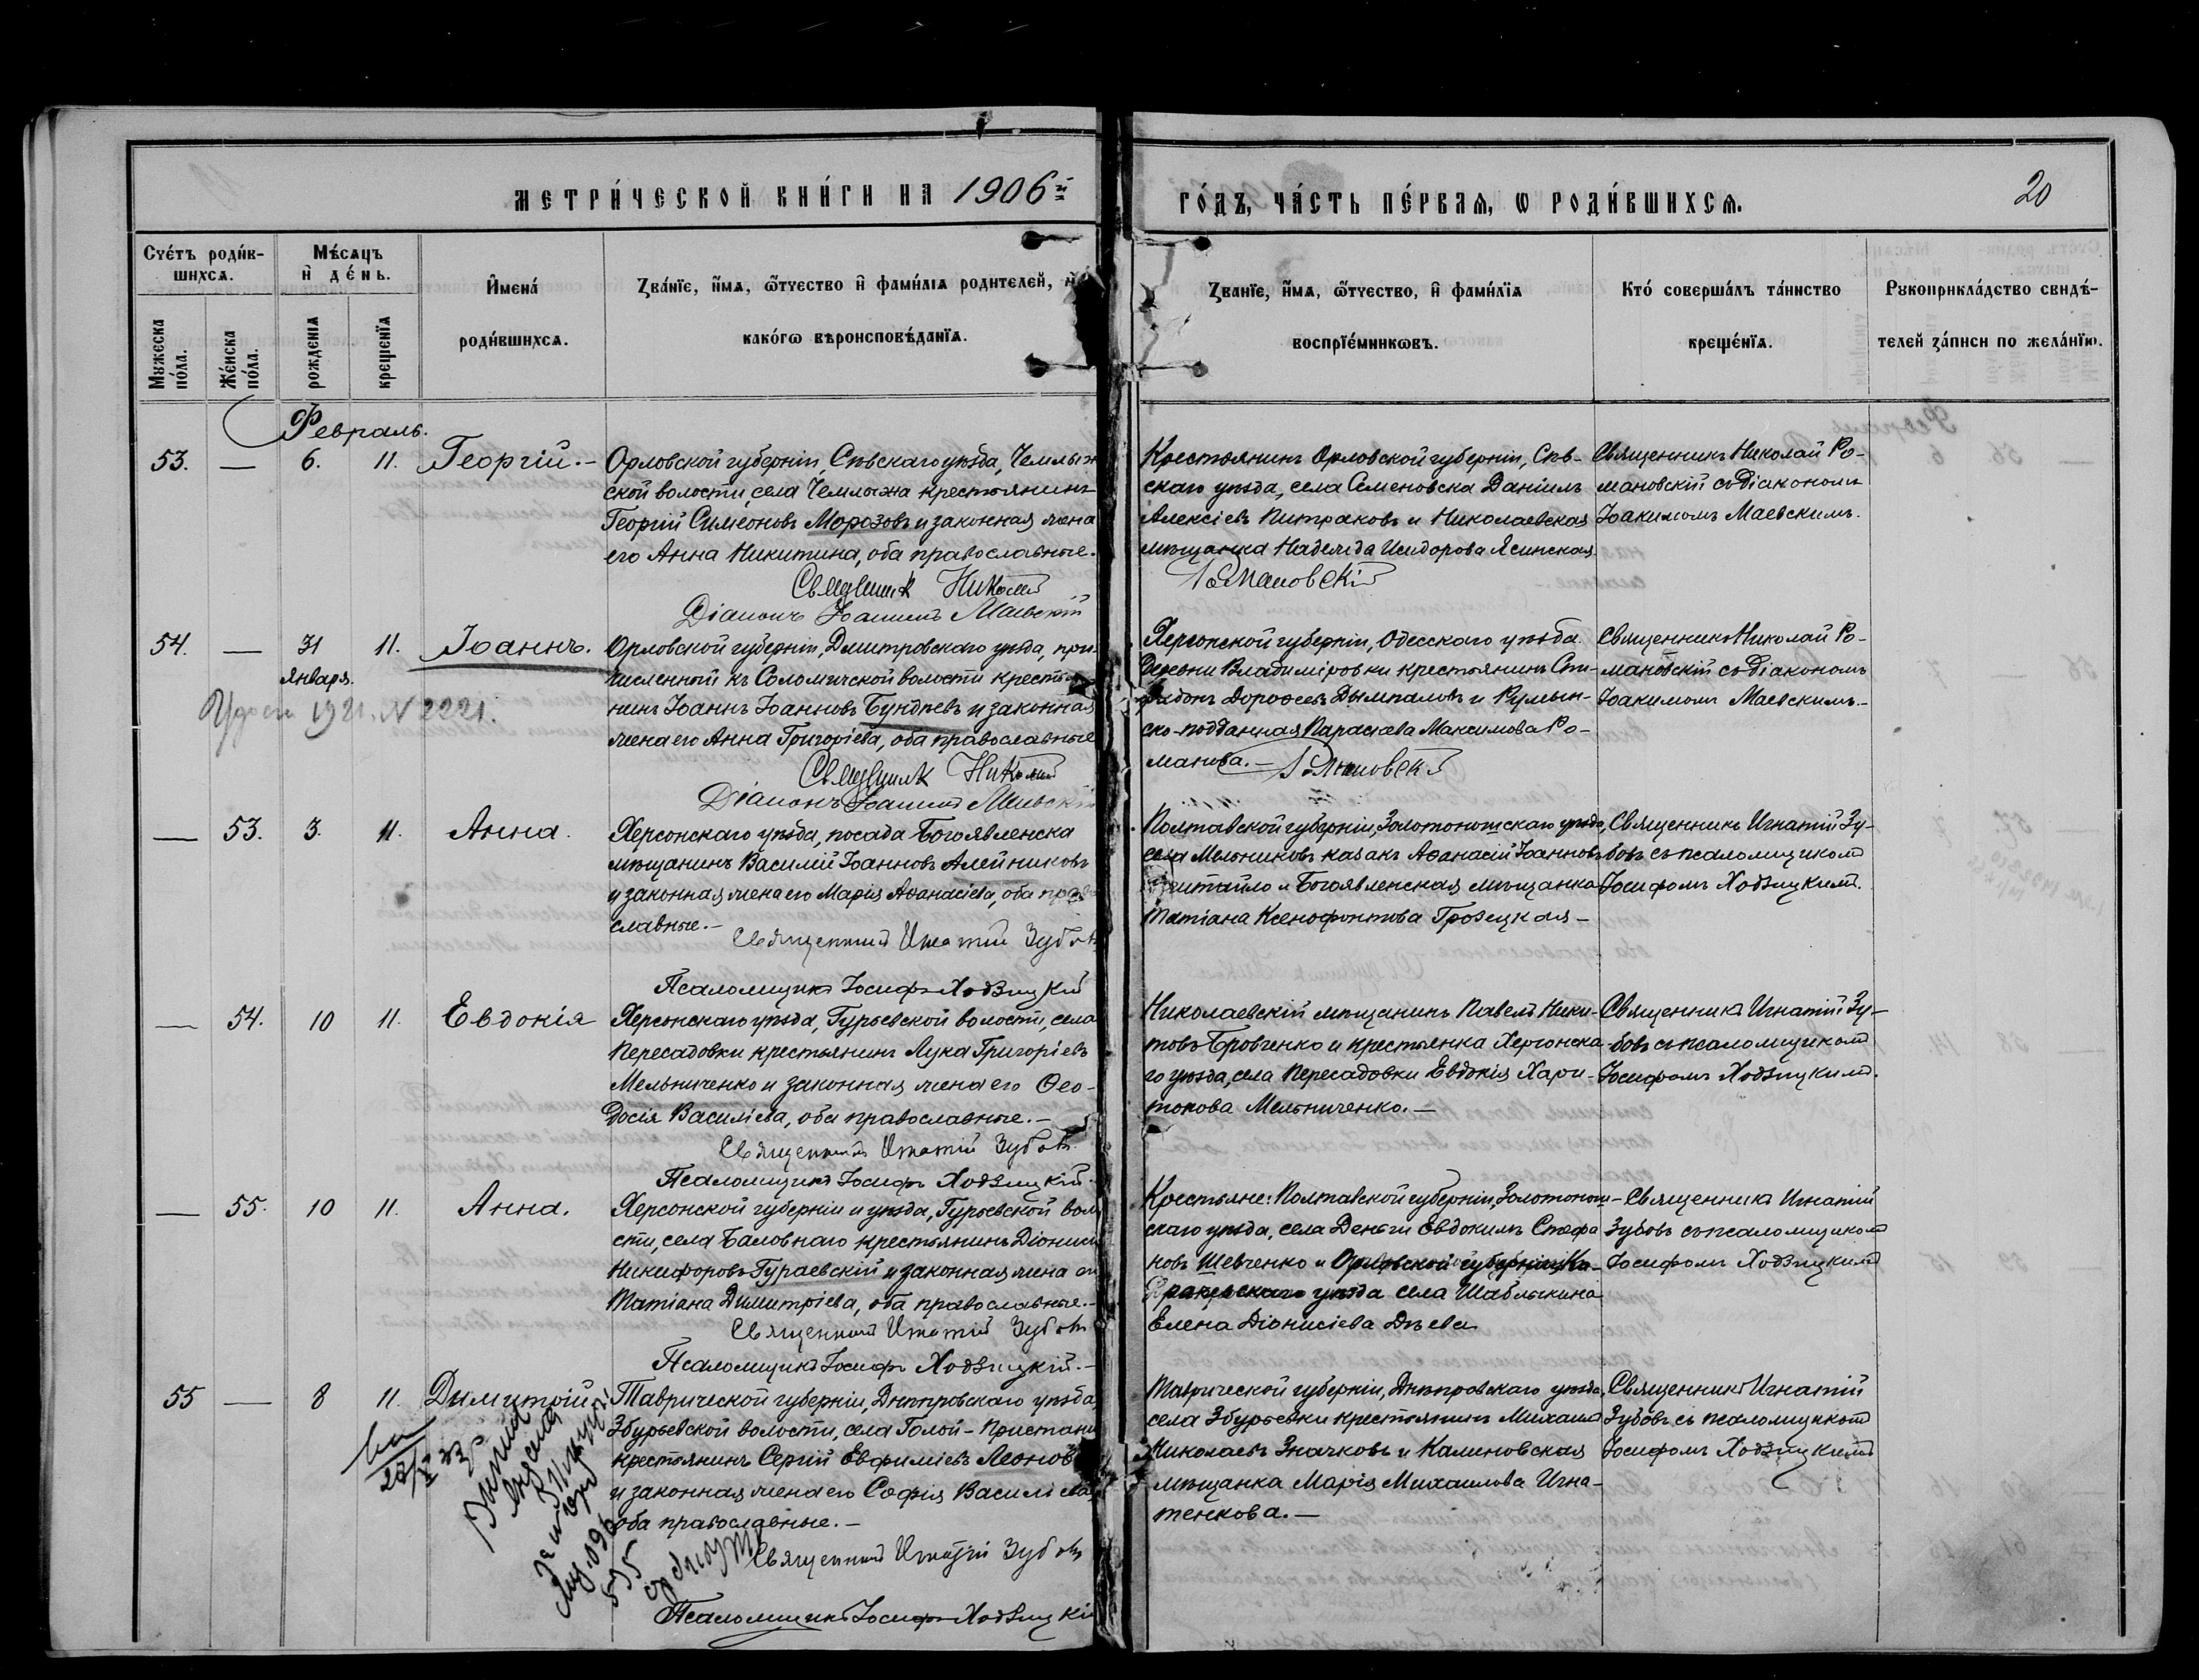 МЕТРИ́ЧЕСКОЙ КНИ́ГИ НА 1906й ГО́ДЪ, ЧА́СТЬ ПЕ́РВАЯ, Ѡ РОДИ́ВШИХСЯ.
20
Счетъ роди́в-
шихся.
Мѣсяцъ
и де́нь.
Имена́
роди́вшихся.
Зва́нїе, имя, ѻтчество и фами́лїя родителей, и
како́гѡ вѣроисповѣ́данїя.
Званїе, имя, ѻтчество, и фами́лїя
воспрїе́мникѡвъ.
Кто́ соверша́лъ та́инство
креще́нїя.
Рукоприкла́дство свидѣ́-
телей за́писи по жела́нїю.
Мужеска
по́ла.
Же́нска
по́ла.
рожденія
крещенїя
Февраль.
53. — 6. 11. Георгій. —
Орловской губерніи, Сѣвскаго уѣзда, Чемлыж
ской волости, села Чемлыжа крестьянинъ
Георгій Симеоновъ Морозовъ и законная жена
его Анна Никитина, оба православные.
Священник Николай
Діаконъ Іоакимъ Маевскій
Крестьянинъ Орловской губерніи, Сѣв-
скаго уѣзда, села Семеновска Даніилъ
Алексіевъ Питраковъ и Николаевская
мѣщанка Надежда Исидорова Ясинская
Романовскій
Священникъ Николай Ро-
мановскій съ діакономъ
Іоакимомъ Маевскимъ.
54. — 31 11. Іоаннъ.
января.
1921. N 2221.
Орловской губерніи, Дмитровскаго уѣзда, при-
численный къ Соломичской волости крестья
нинъ Іоаннъ Іоанновъ Бундяевъ и законная
жена его Анна Григоріева, оба православные
Священник Николай
Діаконъ Іоакимъ Маевскій
Херсонской губерніи, Одесскаго уѣзда
деревни Владиміровки крестьянинъ Спи-
ридонъ Дороѳеевъ и Румын-
ско-подданная Параскева Максимова Ро-
манова. — Романовскій
Священникъ Николай Ро-
мановскій съ діакономъ
Іоакимомъ Маевскимъ. —
— 53. 3. 11. Анна.
Херсонскаго уѣзда, посада Богоявленска
мѣщанинъ Василій Іоанновъ Алейниковъ
и законная жена его Марія Аѳанасіева, оба право
славные. —
Священникъ Игнатій Зубовъ
Псаломщикъ Іосифъ Ходзицкій
Полтавской губерніи, Золотоношскаго уѣзда,
села Мельниковъ казакъ Аѳанасій Іоанновъ
и Богоявленская мѣщанка
Татіана Ксенофонтова Грозецкая —
Священникъ Игнатій Зу-
бовъ съ псаломщикомъ
Іосифомъ Ходзицкимъ.
— 54. 10 11. Евдокія
Херсонскаго уѣзда, Гурьевской волости, села
Пересадовки крестьянинъ Лука Григоріевъ
Мельниченко и законная жена его Ѳео-
досія Василіева, оба православные. —
Священникъ Игнатій Зубовъ
Псаломщикъ Іосифъ Ходзицкій.
Николаевскій мѣщанинъ Павелъ Ники-
товъ Бровченко и крестьянка Херсонска-
го уѣзда, села Пересадовки Евдокія Хари-
тонова Мельниченко. —
Священникъ Игнатій Зу-
бовъ съ псаломщикомъ
Іосифомъ Ходзицкимъ.
— 55. 10 11. Анна.
Херсонской губерніи и уѣзда, Гурьевской воло
сти, села Баловнаго крестьянинъ Діонисій
Никифоровъ Гураевскій и законная жена его
Татіана Димитріева, оба православные. —
Священникъ Игнатій Зубовъ
Псаломщикъ Іосифъ Ходзицкій. —
Крестьяне: Полтавской губерніи, Золотонош-
скаго уѣзда, села Деньги Евдокимъ Стефа
новъ Шевченко и Орловской губерніи, Ка-
рачевскаго уѣзда села Шаблыкина
Елена Діонисіева Дѣева
Священникъ Игнатій
Зубовъ съ псаломщикомъ
Іосифомъ Ходзицкимъ
55 — 8 11. Димитрій
Таврической губерніи, Днѣпровскаго уѣзда
Збурьевской волости, села Голой-Пристани
крестьянинъ Сергій Евфиміевъ Леонов
и законная жена его Софія Василіева
оба православные. —
Священникъ Игнатій Зубовъ
Псаломщикъ Іосифъ Ходзицкій
Таврической губерніи, Днѣпровскаго уѣзда,
села Збурьевки крестьянинъ Михаилъ
Николаевъ Значковъ и Калиновская
мѣщанка Марія Михаилова Игна-
тенкова. —
Священникъ Игнатій
Зубовъ съ псаломщикомъ
Іосифомъ Ходзицкимъ